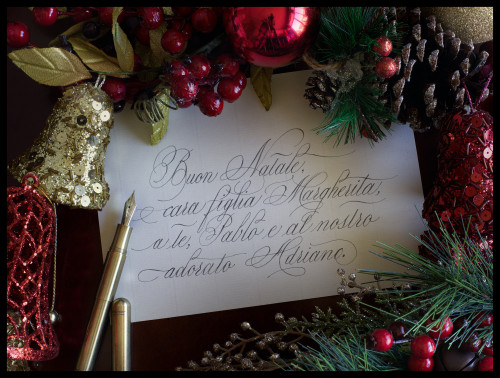 Buon Natale,
cara figlia Margherita,
a te, Pablo e al nostro
adorato Adriano.